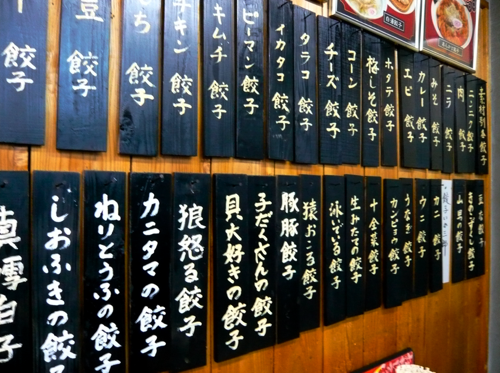 餃子
豆 餃子
餃子
チキン 餃子
キムチ 餃子
ピーマン餃子
イカタコ 餃子
タラコ 餃子
チーズ 餃子
コーン 餃子
梅しそ餃子
ホタテ 餃子
エビ 餃子
カレー餃子
みそ 餃子
ニラ 餃子
肉 餃子
ニンニク餃子
餃子
しおふきの餃子
ねりどうふの餃子
カニタマの餃子
狼怒る餃子
貝大好きの餃子
子だくさんの餃子
豚豚餃子
猿おこる餃子
泳いでいる餃子
生みたての餃子
十全菜餃子
カンピョウ餃子
うなぎ餃子
ウニ 餃子
カニ 餃子
山里の餃子